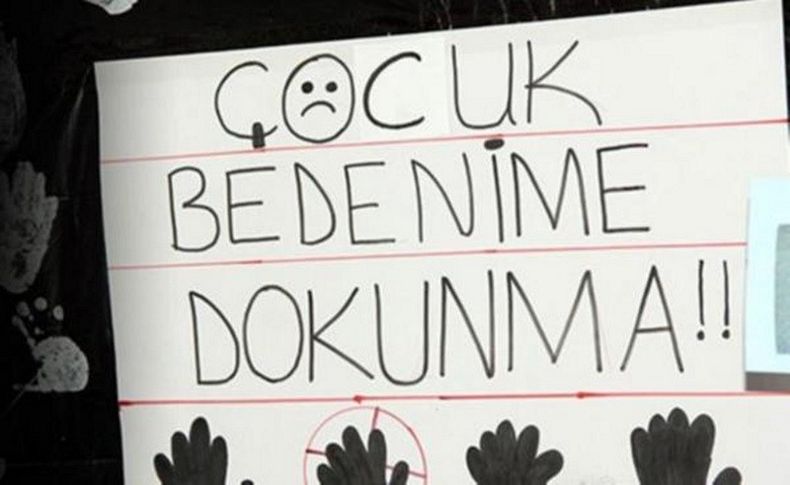 ÇOCUK
BEDENİME
DOKUNMA!!